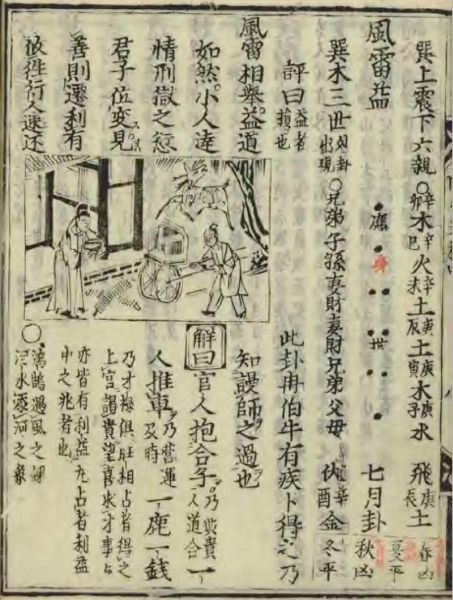 巽上震下六親○辛卯木辛巳火辛未土庚辰土庚寅木庚子水 飛庚辰土 春凶
風雷益 應 身 世 七月卦 秋凶 夏平
巽木三世 ○兄弟子孫妻財妻財兄弟父母 伏辛酉金 冬平
評曰益者損也 此卦冉伯牛有疾卜得之乃
知謾師之過也
風雷相舉益道
如然小人違
情刑獄之愆
君子位変見
善則遷利有
彼往行人速还
解曰官人抱合子乃與貴人道合一
人推車乃營運及時一鹿一錢
乃才祿俱旺相占者得之
上官謁貴望喜求才事占
亦皆有利益凡占者利益
中之兆者也
○鴻鵠遇風之課
水添河之象